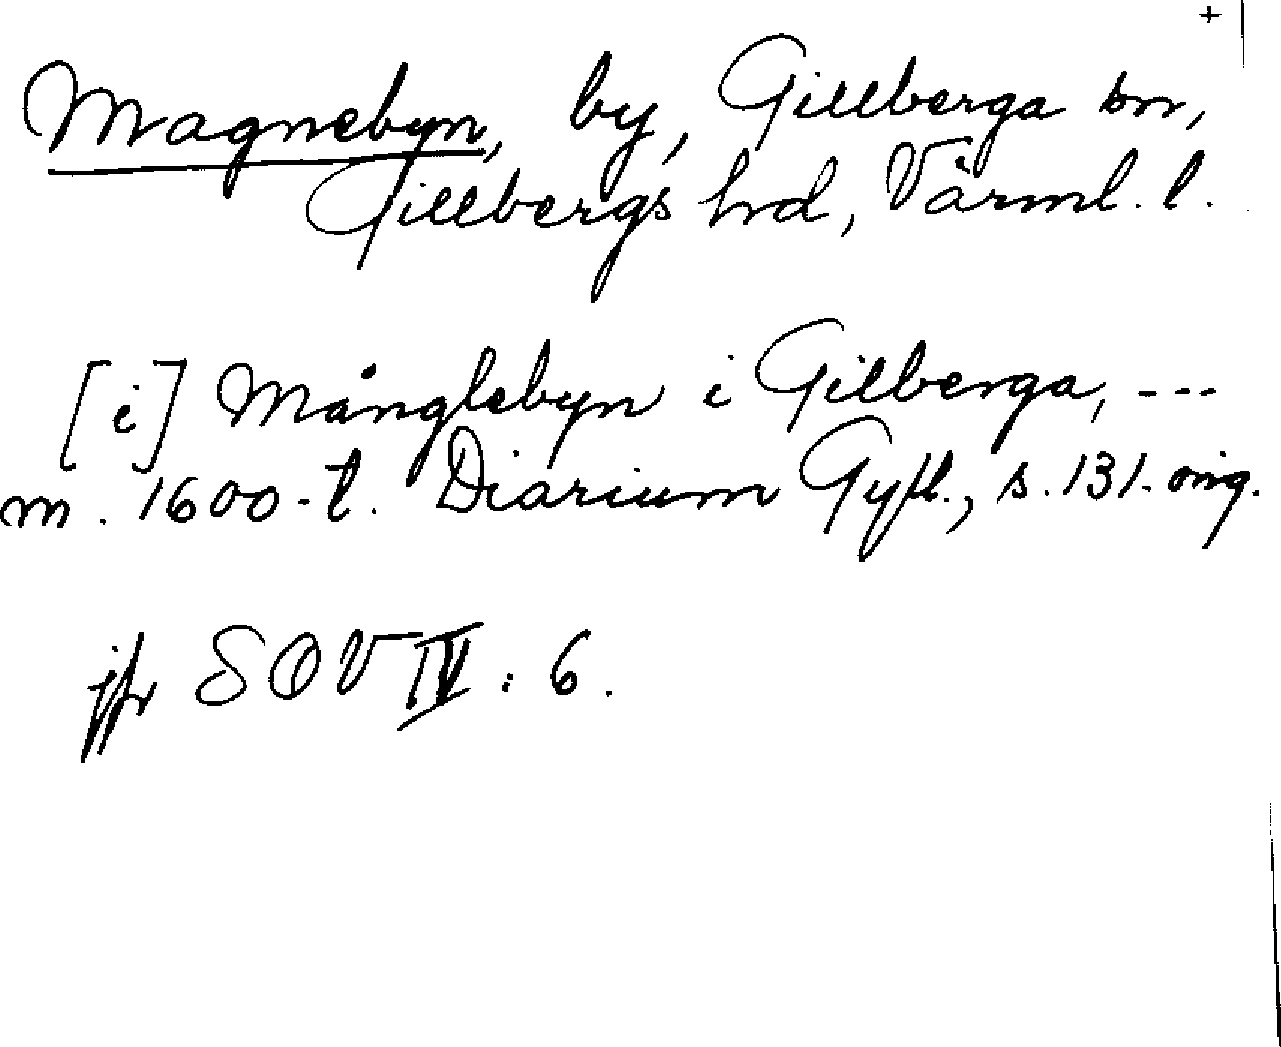 +
Magnebyn, by, Gillberga sn,
Gillbergs hrd, Värml. l.
[i] Månglebyn i Gilberga, ---
m. 1600-t. Diarium Gyll., s. 131. orig.
jfr SOV IV : 6.